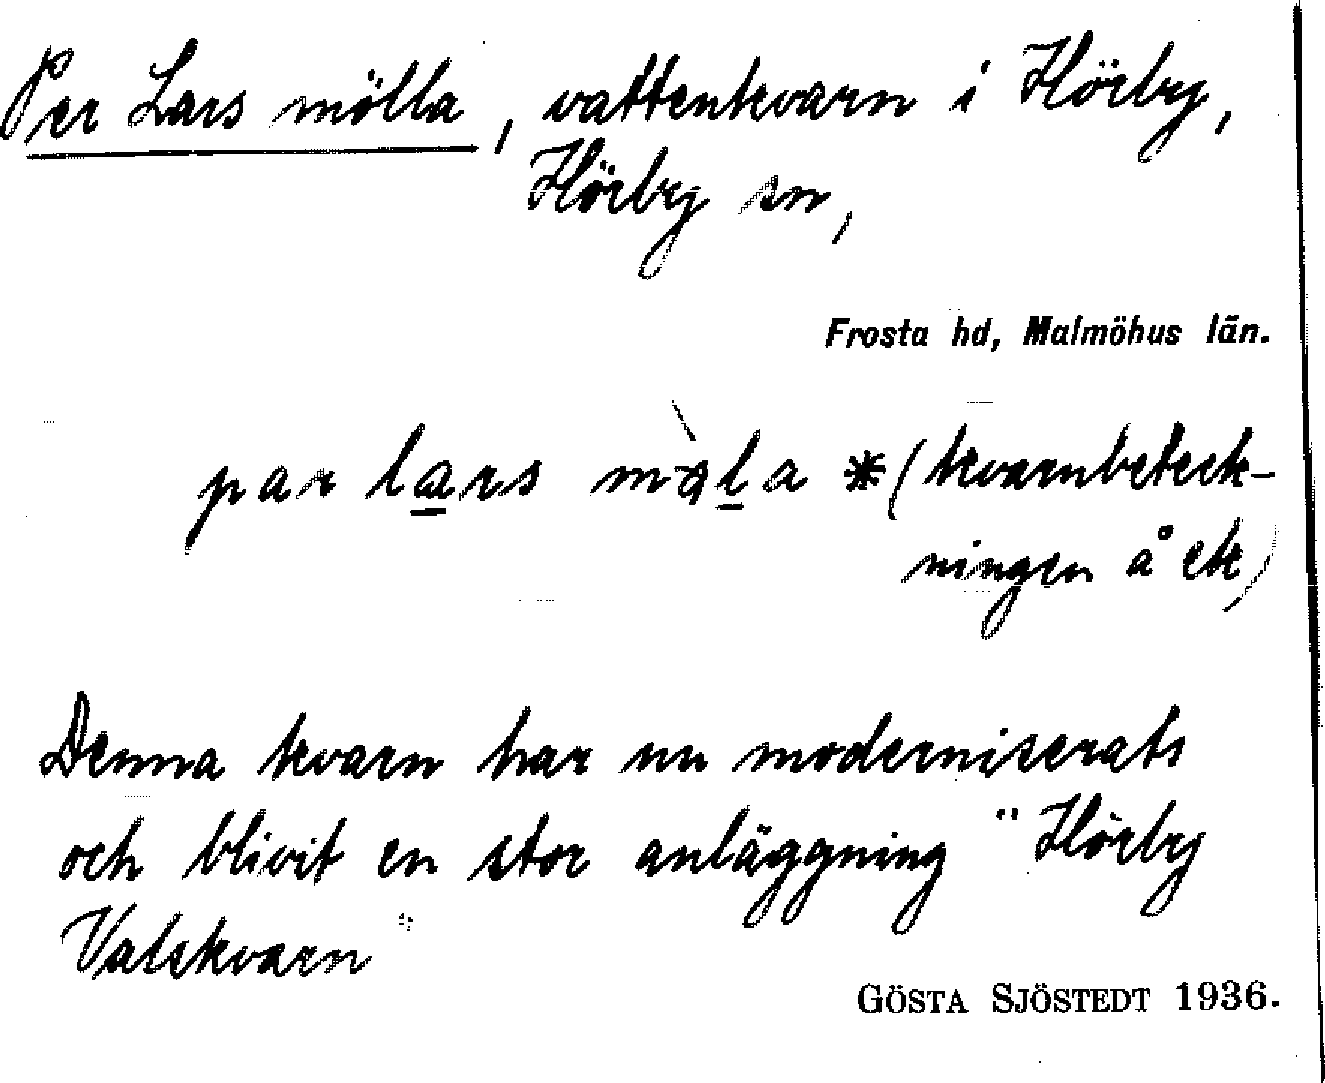 Per Lars mölla, vattenkvarn i Hörby,
Hörby sn,
Frosta hd, Malmöhus län.
par lars màla * (kvarnbeteck-
ningen å ek)
Denna kvarn har nu moderniserats
och blivit en stor anläggning "Hörby
Valskvarn"
GÖSTA SJÖSTEDT 1936.